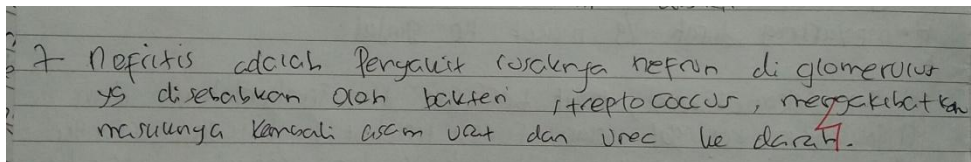 7 Nefritis adalah Penyakit rusaknya nefron di glomerulus
yg disebabkan oleh bakteri streptococcus, menggakibatkan
masuknya kembali asam urat dan urea ke darah.